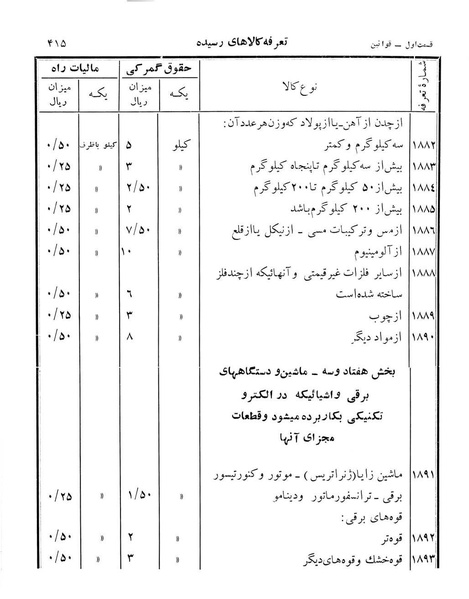 قسمت اول – قوانین تعرفه کالاهای رسیده ۴۱۵
شمارهٔ تعرفه نوع کالا حقوق گمرکی مالیات راه
یکه میزان ریال یکه میزان ریال
از چدن از آهن – یا از پولاد که وزن هر عدد آن:
۱۸۸۲ سه کیلوگرم و کمتر کیلو ۵ کیلو باظرف ۰/۵۰
۱۸۸۳ بیش از سه کیلوگرم تا پنجاه کیلوگرم » ۳ » ۰/۲۵
۱۸۸۴ بیش از ۵۰ کیلوگرم تا ۲۰۰ کیلوگرم » ۲/۵۰ » ۰/۲۵
۱۸۸۵ بیش از ۲۰۰ کیلوگرم باشد » ۲ » ۰/۲۵
۱۸۸۶ از مس و ترکیبات مسی – از نیکل یا از قلع » ۷/۵۰ » ۰/۵۰
۱۸۸۷ از آلومینیوم » ۱۰ » ۰/۵۰
۱۸۸۸ از سایر فلزات غیرقیمتی و آنهائیکه از چند فلز
ساخته شده است » ۶ » ۰/۵۰
۱۸۸۹ از چوب » ۳ » ۰/۲۵
۱۸۹۰ از مواد دیگر » ۸ » ۰/۵۰
بخش هفتاد و سه – ماشین و دستگاههای
برقی و اشیائیکه در الکترو
تکنیکی بکار برده میشود و قطعات
مجزای آنها
۱۸۹۱ ماشین زایا (ژنراتریس) – موتور و کنورتیسور
برقی – ترانسفورماتور و دینامو » ۱/۵۰ » ۰/۲۵
قوه‌های برقی:
۱۸۹۲ قوه تر » ۲ » ۰/۵۰
۱۸۹۳ قوه خشك و قوه‌های دیگر » ۳ » ۰/۵۰